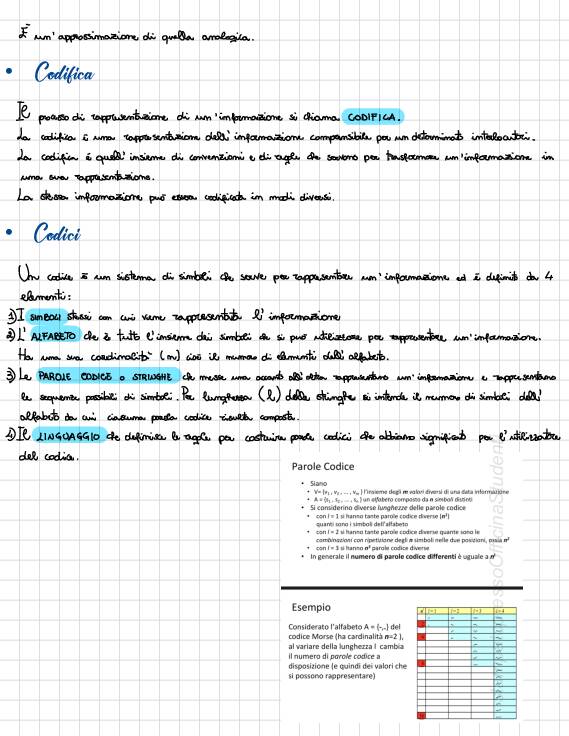 È un'approssimazione di quella analogica.
• Codifica
Il processo di rappresentazione di un'informazione si chiama CODIFICA.
La codifica è una rappresentazione dell'informazione comprensibile per un determinato interlocutore.
La codifica è quell'insieme di convenzioni e di regole che servono per trasformare un'informazione in
una sua rappresentazione.
La stessa informazione può essere codificata in modi diversi.
• Codici
Un codice è un sistema di simboli che serve per rappresentare un'informazione ed è definito da 4
elementi:
1) I SIMBOLI stessi con cui viene rappresentata l'informazione
2) L'ALFABETO che è tutto l'insieme dei simboli che si può utilizzare per rappresentare un'informazione.
Ha una sua cardinalità (n) cioè il numero di elementi dell'alfabeto.
3) Le PAROLE CODICE o STRINGHE che messe una accanto all'altra rappresentano un'informazione e rappresentano
le sequenze possibili di simboli. Per lunghezza (l) delle stringhe si intende il numero di simboli dell'
alfabeto da cui ciascuna parola codice risulta composta.
4) Il LINGUAGGIO che definisce le regole per costruire parole codici che abbiano significato per l'utilizzatore
del codice.
Parole Codice
• Siano
• V= {v1 , v2 , ... , vm } l'insieme degli m valori diversi di una data informazione
• A = {s1 , s2 , ... , sn } un alfabeto composto da n simboli distinti
• Si considerino diverse lunghezze delle parole codice
• con l = 1 si hanno tante parole codice diverse (n¹)
quanti sono i simboli dell'alfabeto
• con l = 2 si hanno tante parole codice diverse quante sono le
combinazioni con ripetizione degli n simboli nelle due posizioni, ossia n²
• con l = 3 si hanno n³ parole codice diverse
• In generale il numero di parole codice differenti è uguale a nˡ
Esempio
Considerato l'alfabeto A = {-,.} del
codice Morse (ha cardinalità n=2 ),
al variare della lunghezza l cambia
il numero di parole codice a
disposizione (e quindi dei valori che
si possono rappresentare)
l = 1 l = 2 l = 3 l = 4